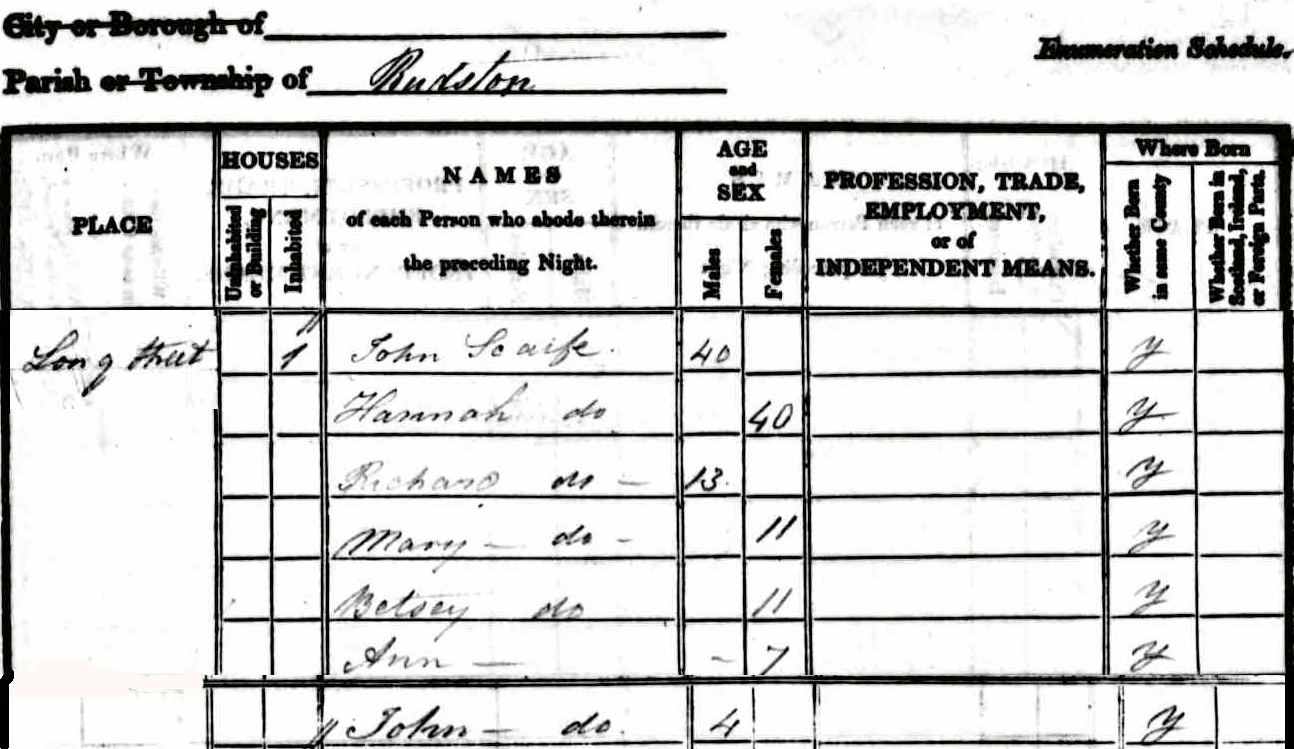 City or Borough of
Enumeration Schedule.
Parish or Township of Rudston
PLACE
HOUSES
Uninhabited or Building
Inhabited
NAMES
of each Person who abode therein
the preceding Night.
AGE
and
SEX
Males
Females
PROFESSION, TRADE,
EMPLOYMENT,
or of
INDEPENDENT MEANS.
Where Born
Whether Born in same County
Whether Born in Scotland, Ireland, or Foreign Parts.
Long Street 1 John Scaife 40 y
Hannah do 40 y
Richard do - 13 y
Mary - do - 11 y
Betsey do 11 y
Ann - - 7 y
John - do. 4 y